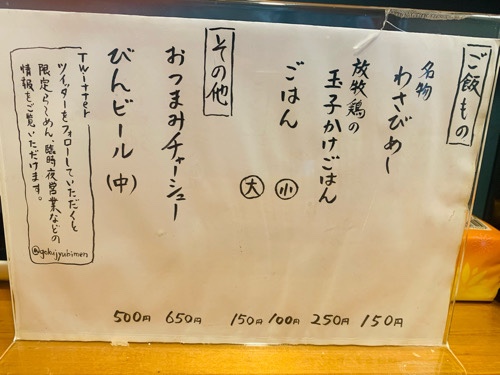 ご飯もの
名物
わさびめし
150円
放牧鶏の
玉子かけごはん
250円
ごはん
小
100円
大
150円
その他
おつまみチャーシュー
650円
びんビール(中)
500円
Twitter
ツイッターをフォローしていただくと
限定らーめん、臨時夜営業などの
情報をご覧いただけます。